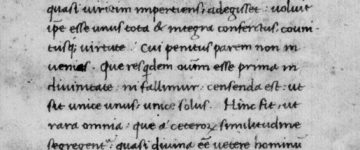 quasi viritim impertiens: adegisset: voluit
ipē esse unus tota & integra confertus, coun-
tusq; virtute. Cui penitus parem non in
venias. Que resq̇dem ouīm esse prima in
divinitate, ni fallimur, censenda est: ut
sit unice unus, unice solus. Hinc fit, ut
rara omnia, que a ceteroȝ similitudine
segregent: quasi divina eē vetere hominū